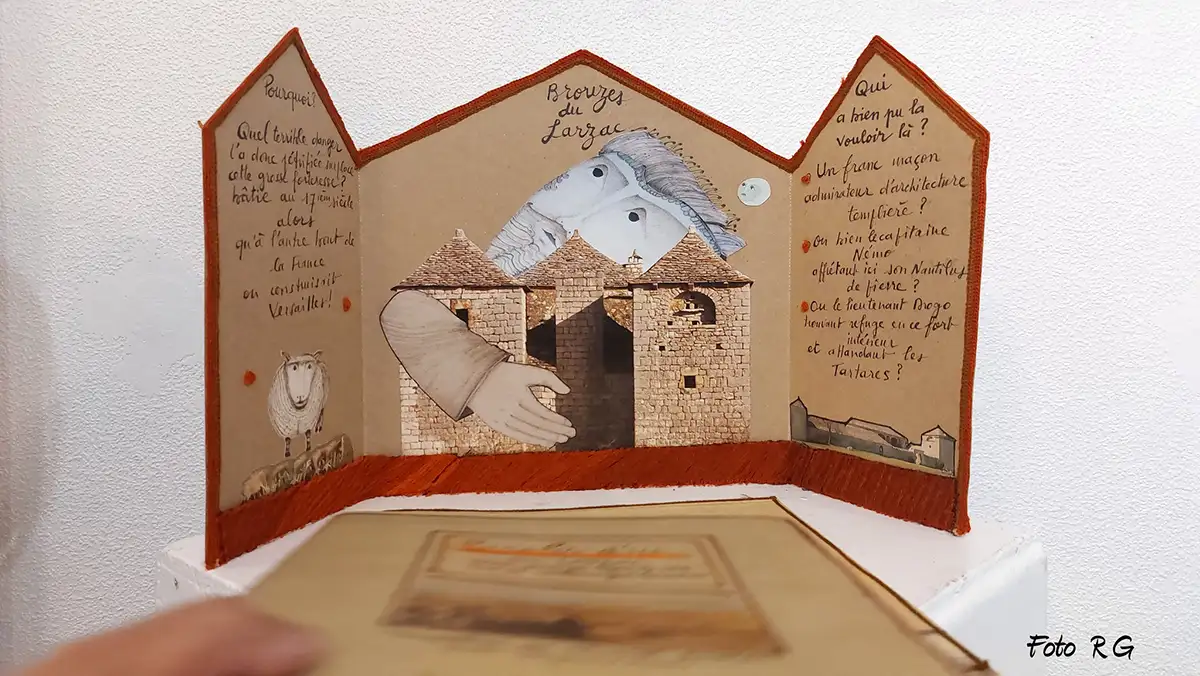 Pourquoi?
Quel terrible danger
l'a donc pétrifiée sur place
cette grosse forteresse?
bâtie au 17ième siècle
alors
qu'à l'autre bout de
la France
on construisait
Versailles!
Brouzes
du
Larzac
Qui
a bien pu la
vouloir là ?
Un franc maçon
admirateur d'architecture
templière ?
Ou bien le capitaine
Némo
affrétant ici son Nautilus
de pierre ?
Ou le lieutenant Drogo
trouvant refuge en ce fort
intérieur
et attendant les
Tartares ?
Foto RG